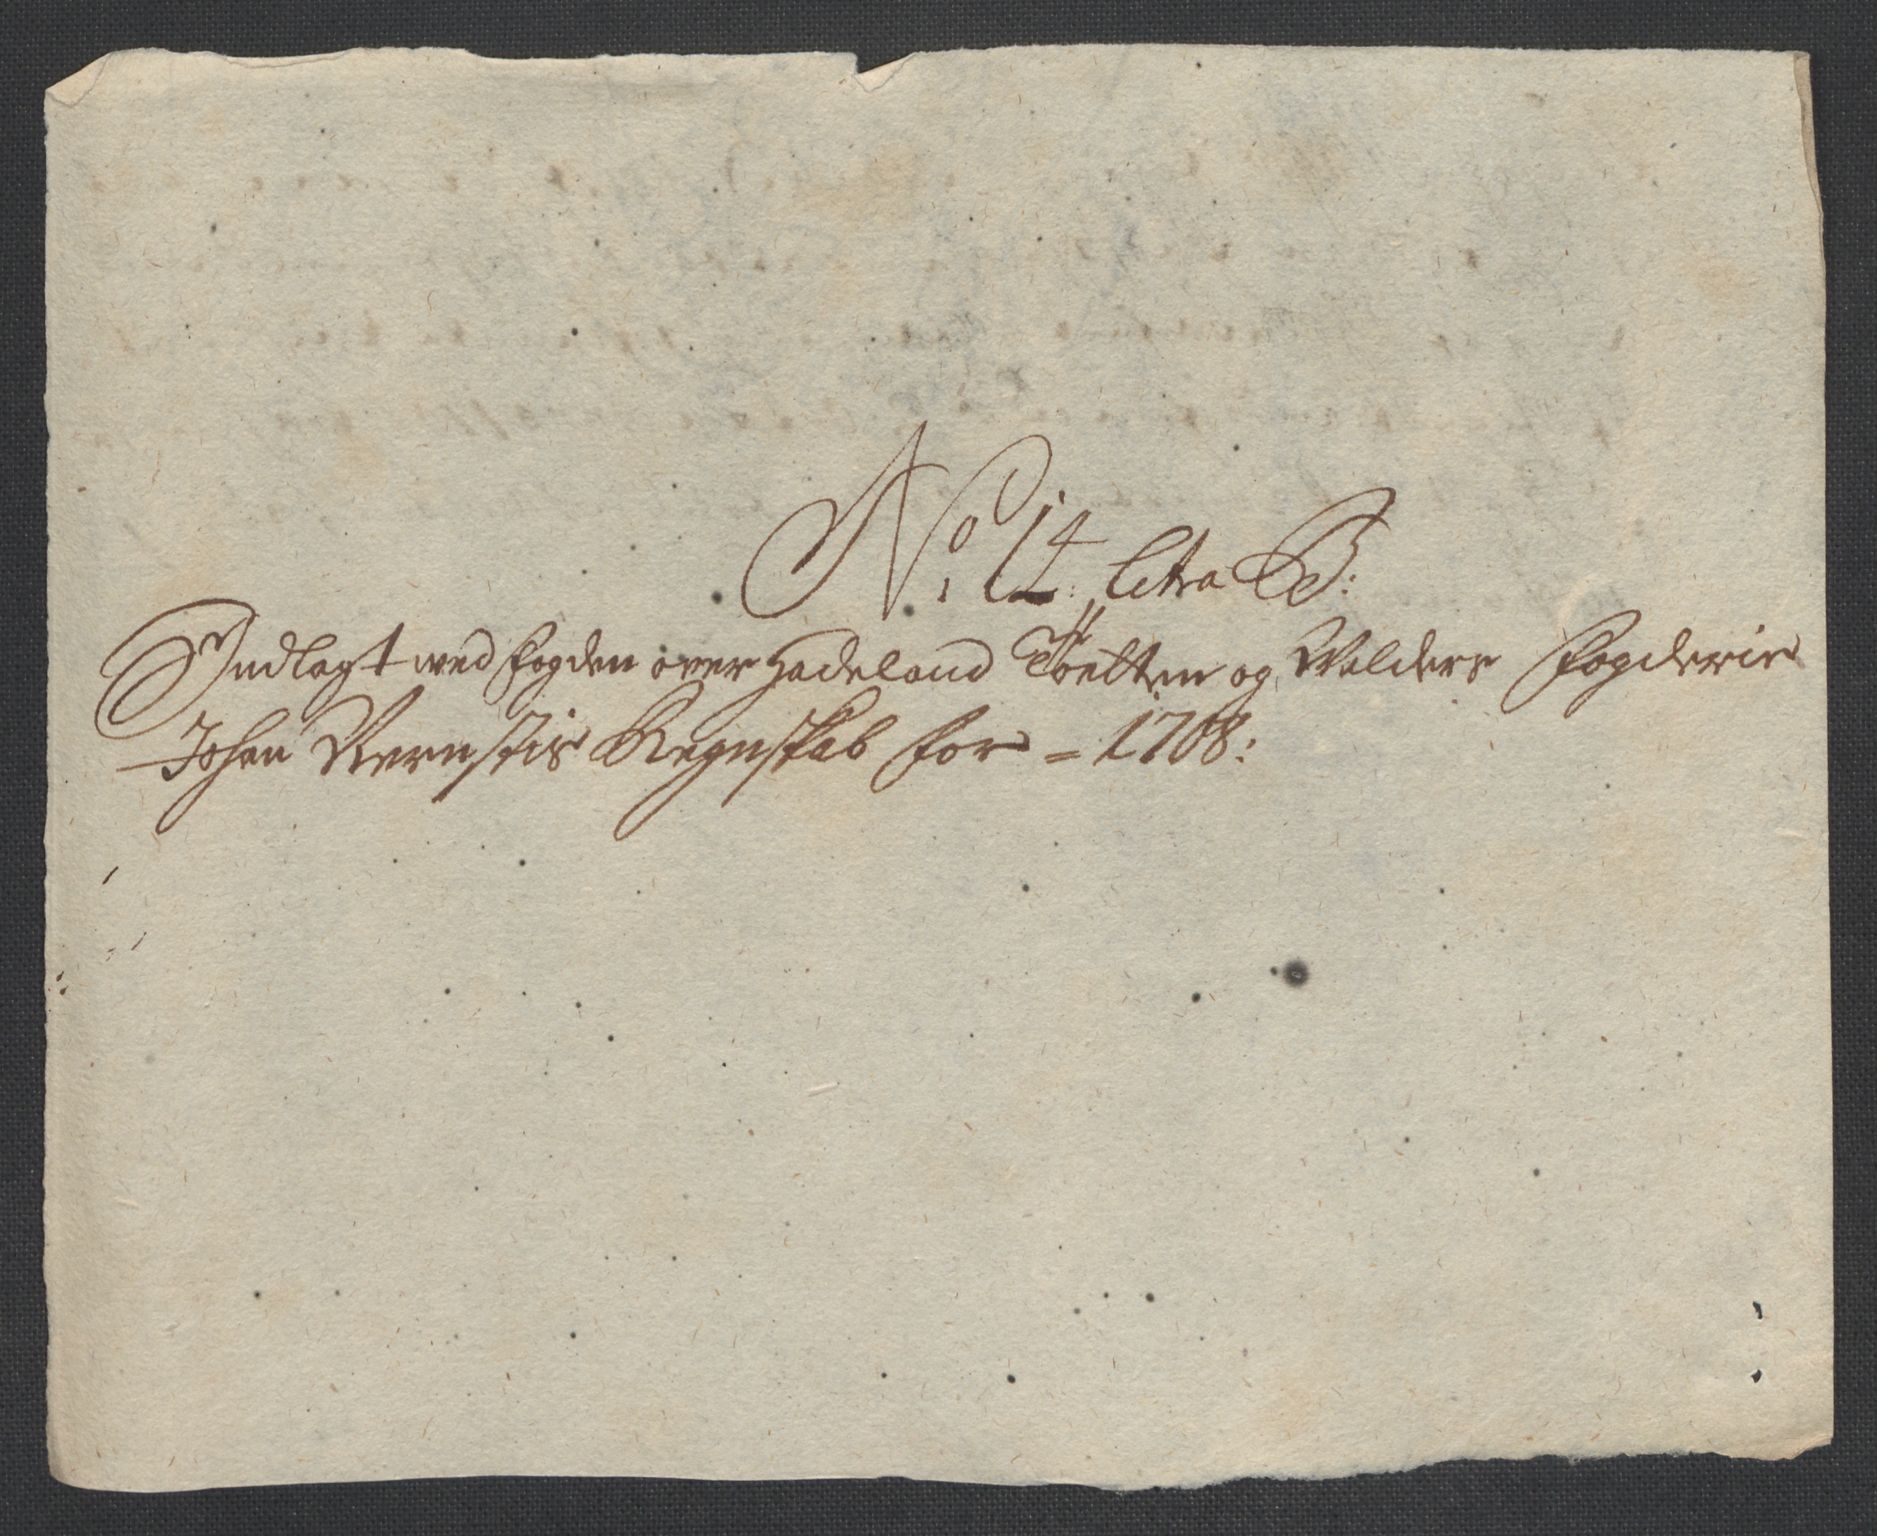 No: 14: litra B:
Indlagt wed fogden over Hadeland Toetten og Walders fogderie
Johan Rernstis Regnskab for = 1708: